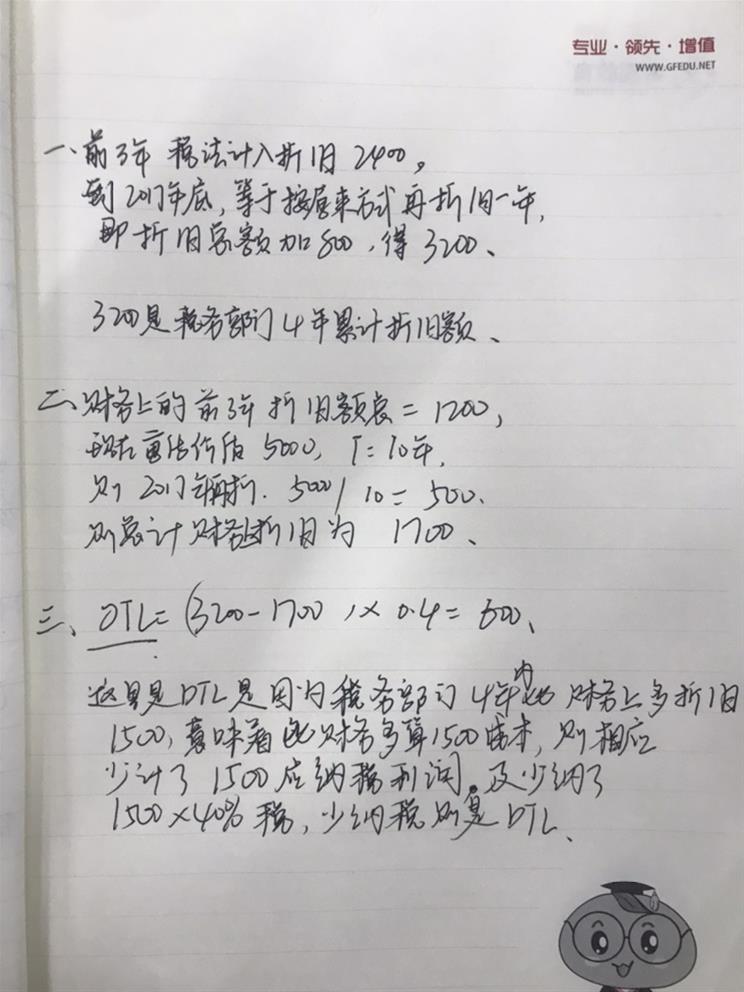 专业·领先·增值
WWW.GFEDU.NET
一、前3年 税法计入折旧 2400。
到2017年底,等于按原来方式再折旧一年,
即折旧总额加800,得3200、
3200是税务部门4年累计折旧额、
二、财务上的前3年折旧额总=1200,
现在重估价后 5000, T=10年,
则2017年再折. 5000/10=500.
则总计财务折旧为 1700、
三、DTL=(3200-1700)×0.4=600、
这里是DTL是因为税务部门4年内比财务上多折旧
1500,意味着比财务多算1500成本,则相应
少计了1500应纳税利润。及少纳了
1500×40%税,少纳税则是DTL、